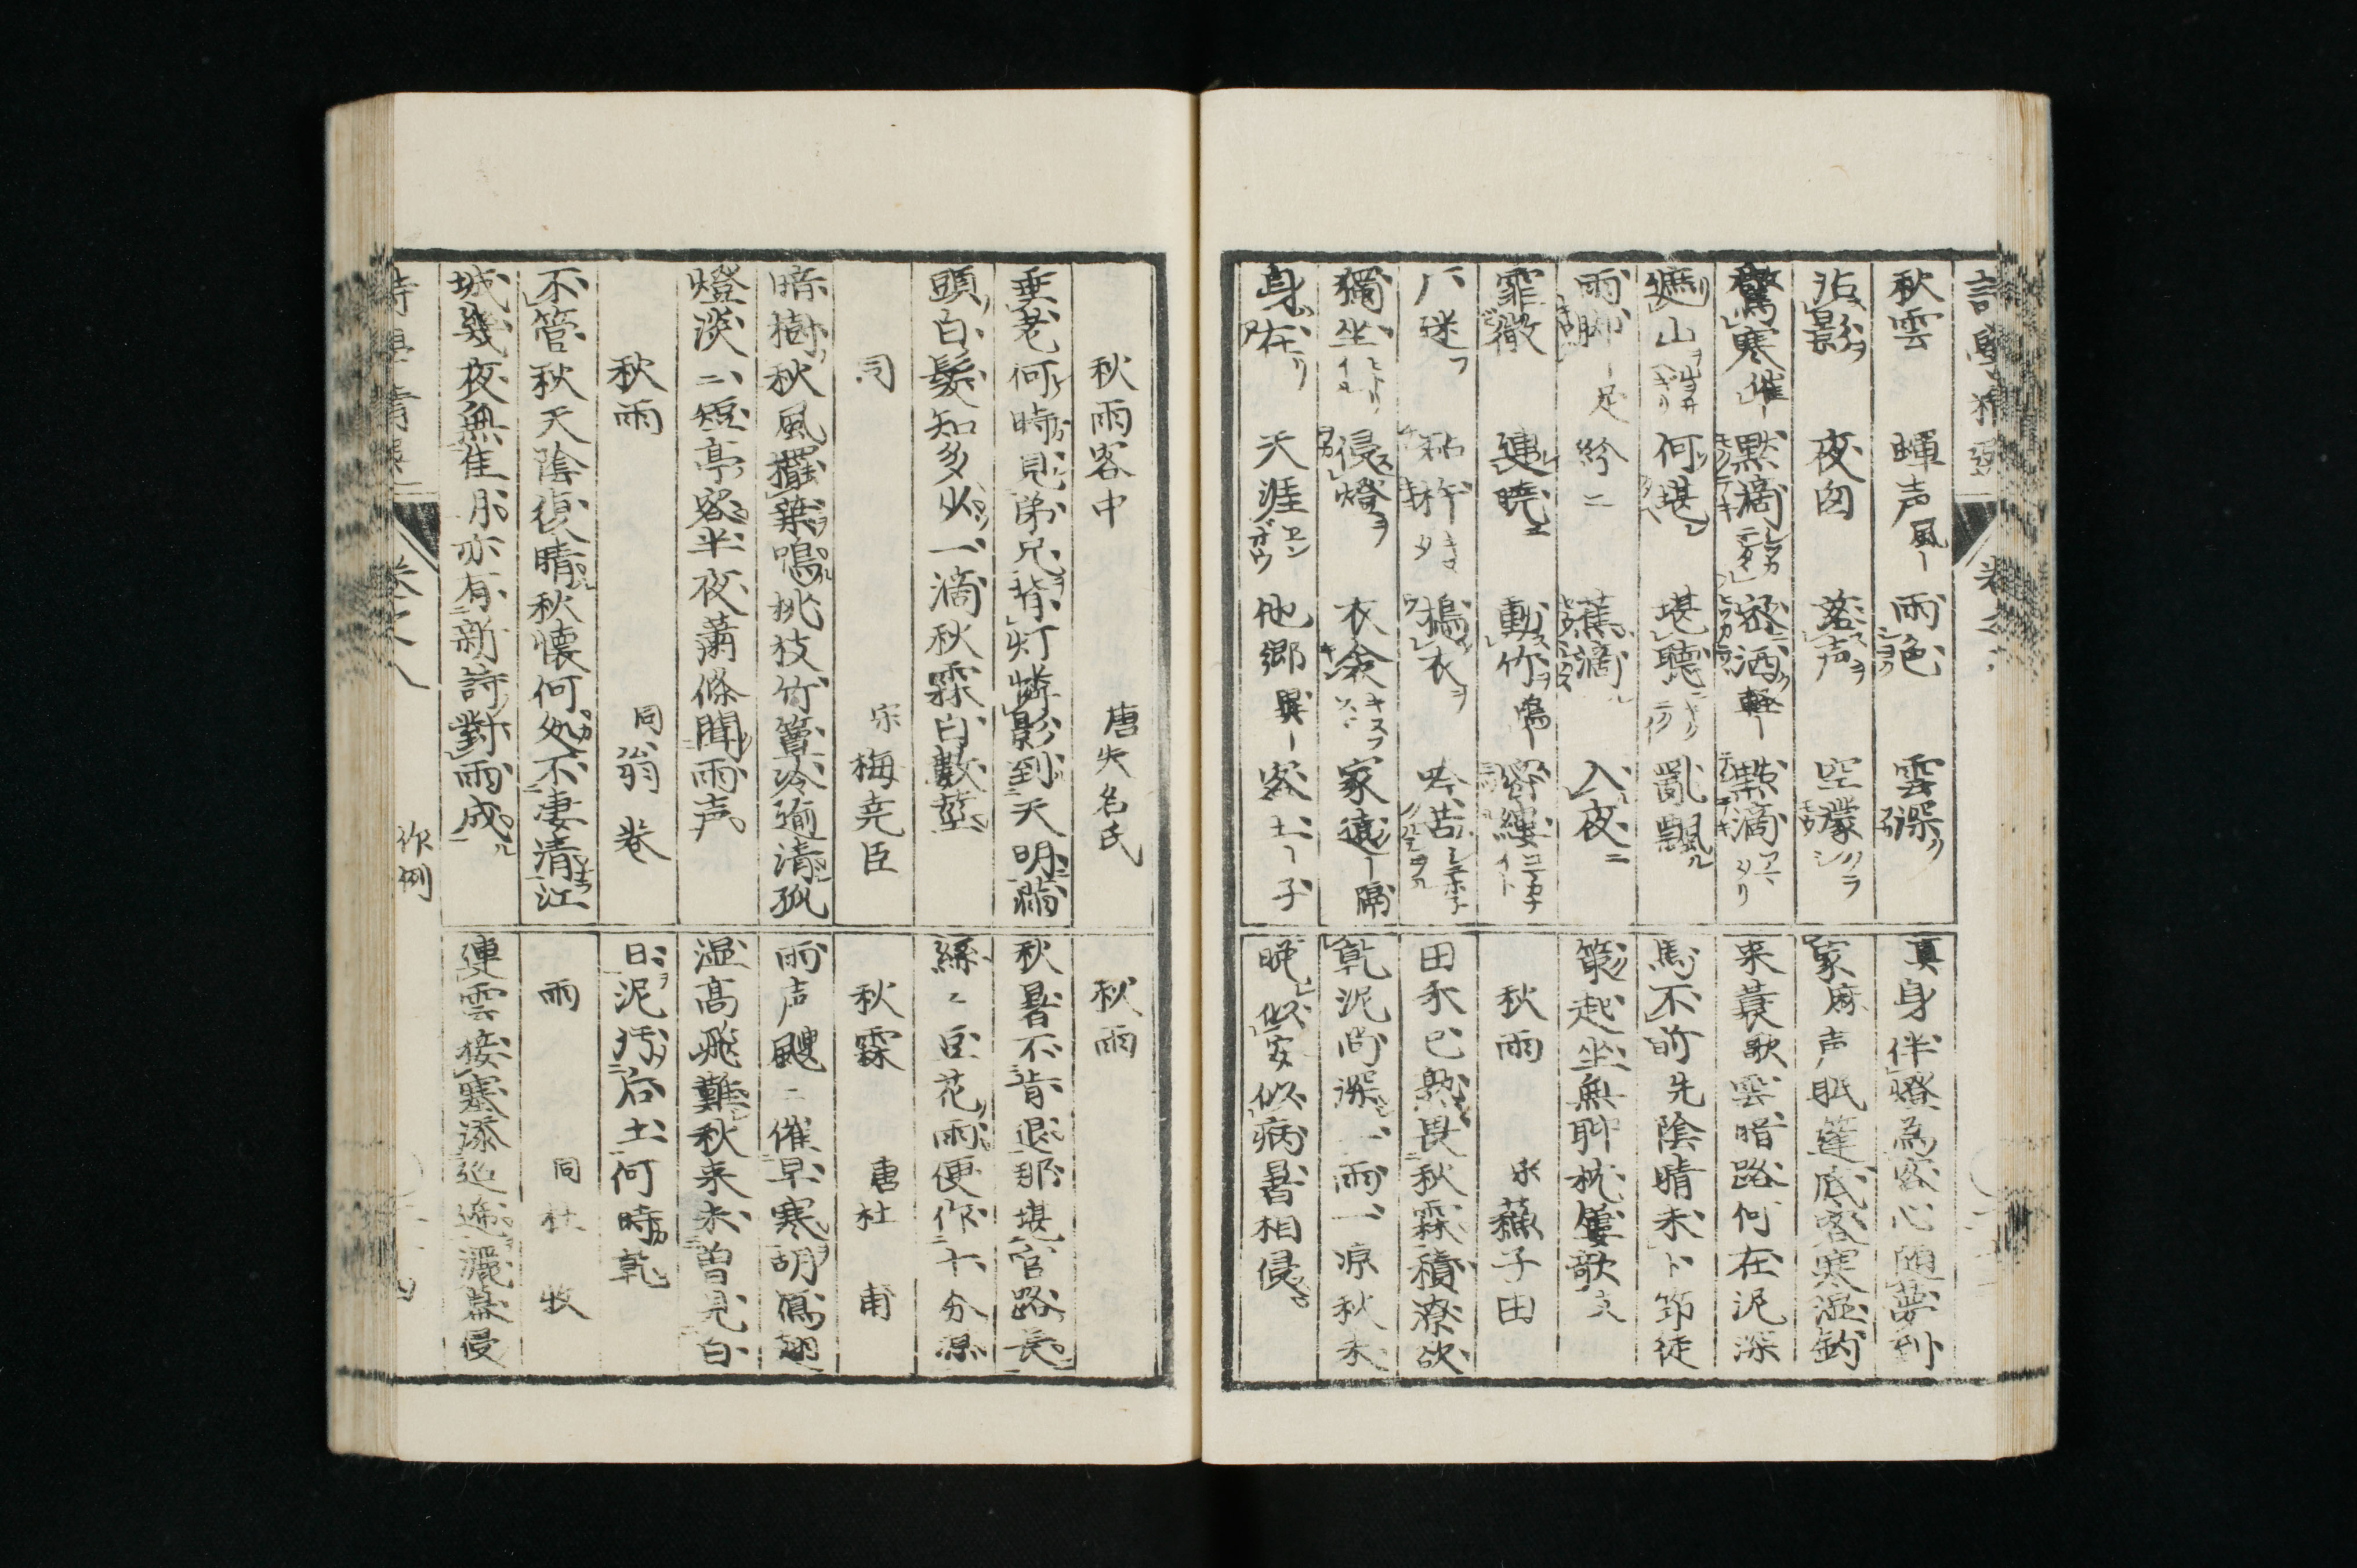 秋雲 暉声風 雨色 雲深
沾影 夜囱 落声 空濛
驚寒催 黙滴 密洒軽 點滴
遮山 何堪 堪聴 亂飄
雨脚足 紛二 蕉滴 入夜
霏微 連暁 動竹鳴 縷
八迷 砧杵 搗衣 吟苦
獨坐 侵燈 衣衾 家遠隔
身在 天涯 他郷異 客土子
真身伴燈為客心随夢到
家麻声眠篷底客寒湿釣
来蓑歌雲暗路何在泥深
馬不前先陰晴未卜筇徒
策起坐無聊枕簟歌支
秋雨 宋蘇子由
田禾已熟畏秋霖積潦欲
乾泥尚深一雨一凉秋未
晩似安似病暑相侵
秋雨客中 唐失名氏
垂老何時見弟兄背灯憐影到天明窓
頭白髪知多少一滴秋霖白數莖
同 宋梅尭臣
暗樹秋風擺葉鳴挑枝竹簟冷逾清孤
燈淡二短亭客半夜蕭條聞雨声
秋雨 同翁巻
不管秋天陰復晴秋懐何処不凄清江
城幾夜無佳月亦有新詩對雨成
秋雨
秋暑不肯退那堪官路長
絲々豆花雨便作十分凉
秋霖 唐杜甫
雨声颼二催早寒胡鴈翅
湿高飛難秋来未曽見白
日泥汚后土何時乾
雨 同杜牧
連雲接塞添迢逓灑幕侵
巻之八
作例